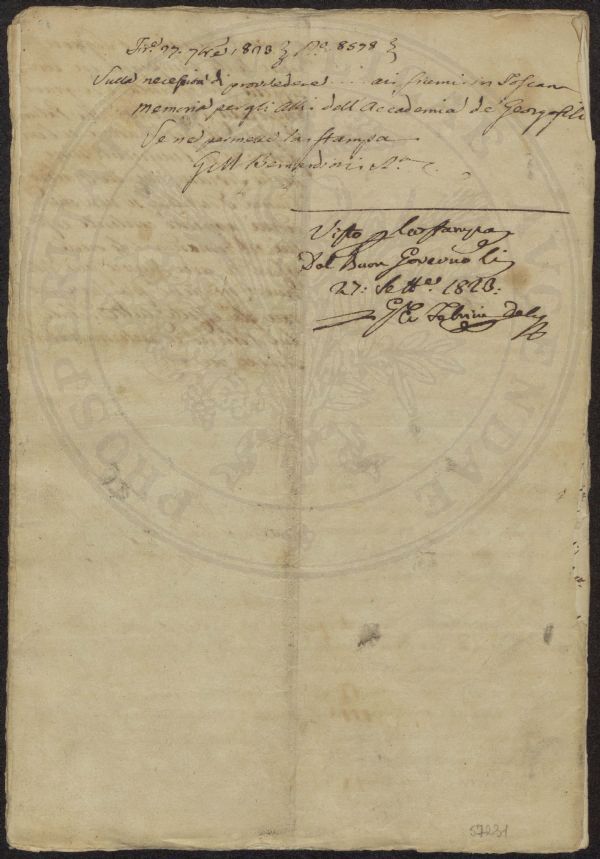 Fir.e 27. 7bre 1823 } N.o 8578 }
Sulla necessità di provvedere ... ai fiumi in Toscana
memoria per gli Atti dell Accademia de' Georgofili
Se ne permette la stampa
Bernardini
Visto per la stampa
Dal Buon Governo li
27: Sett.e 1823:
PROSPERITATI AUGENDAE
57231